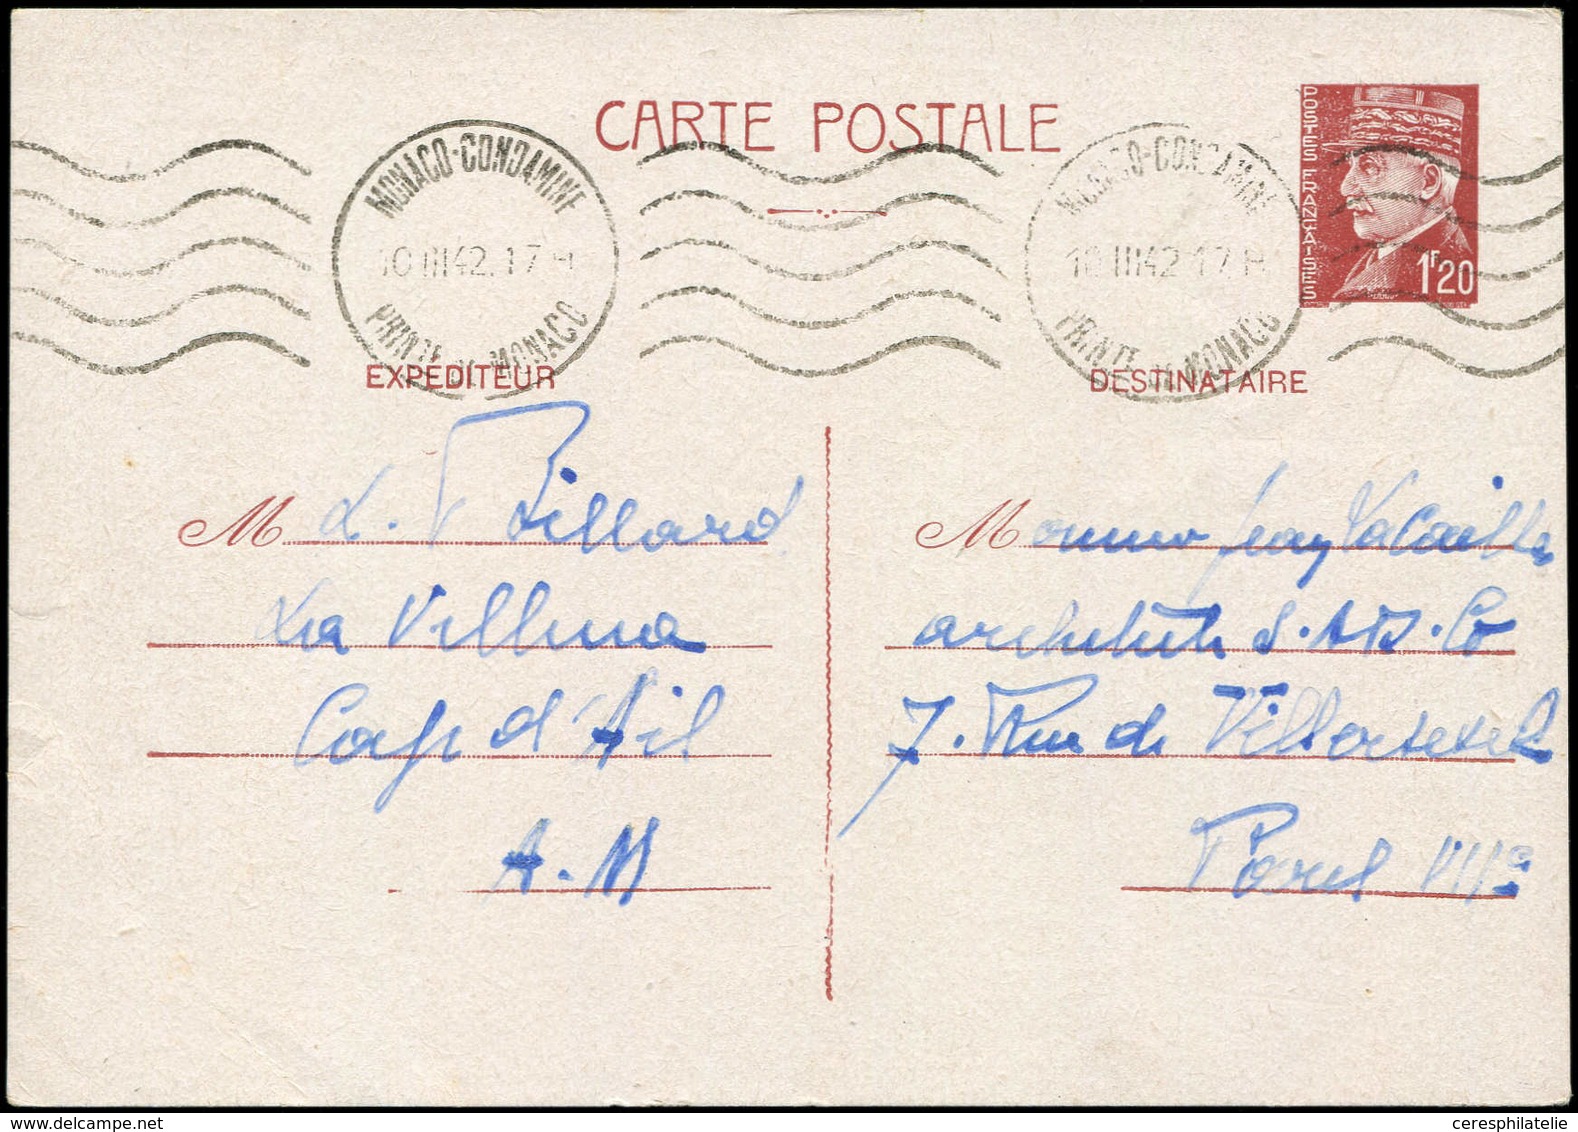 CARTE POSTALE
POSTES FRANÇAISES
1F20
MONACO-CONDAMINE
10 III 42. 17 H
PRINTÉ DE MONACO
MONACO-CONDAMINE
10 III 42 17 H
PRINTÉ DE MONACO
EXPÉDITEUR
M L. Billard
La Villa
Cap d'Ail
A.M
DESTINATAIRE
M Jean Lacaille
architecte
7. Rue de Villersexel
Paris VIIe
ceresphilatelie